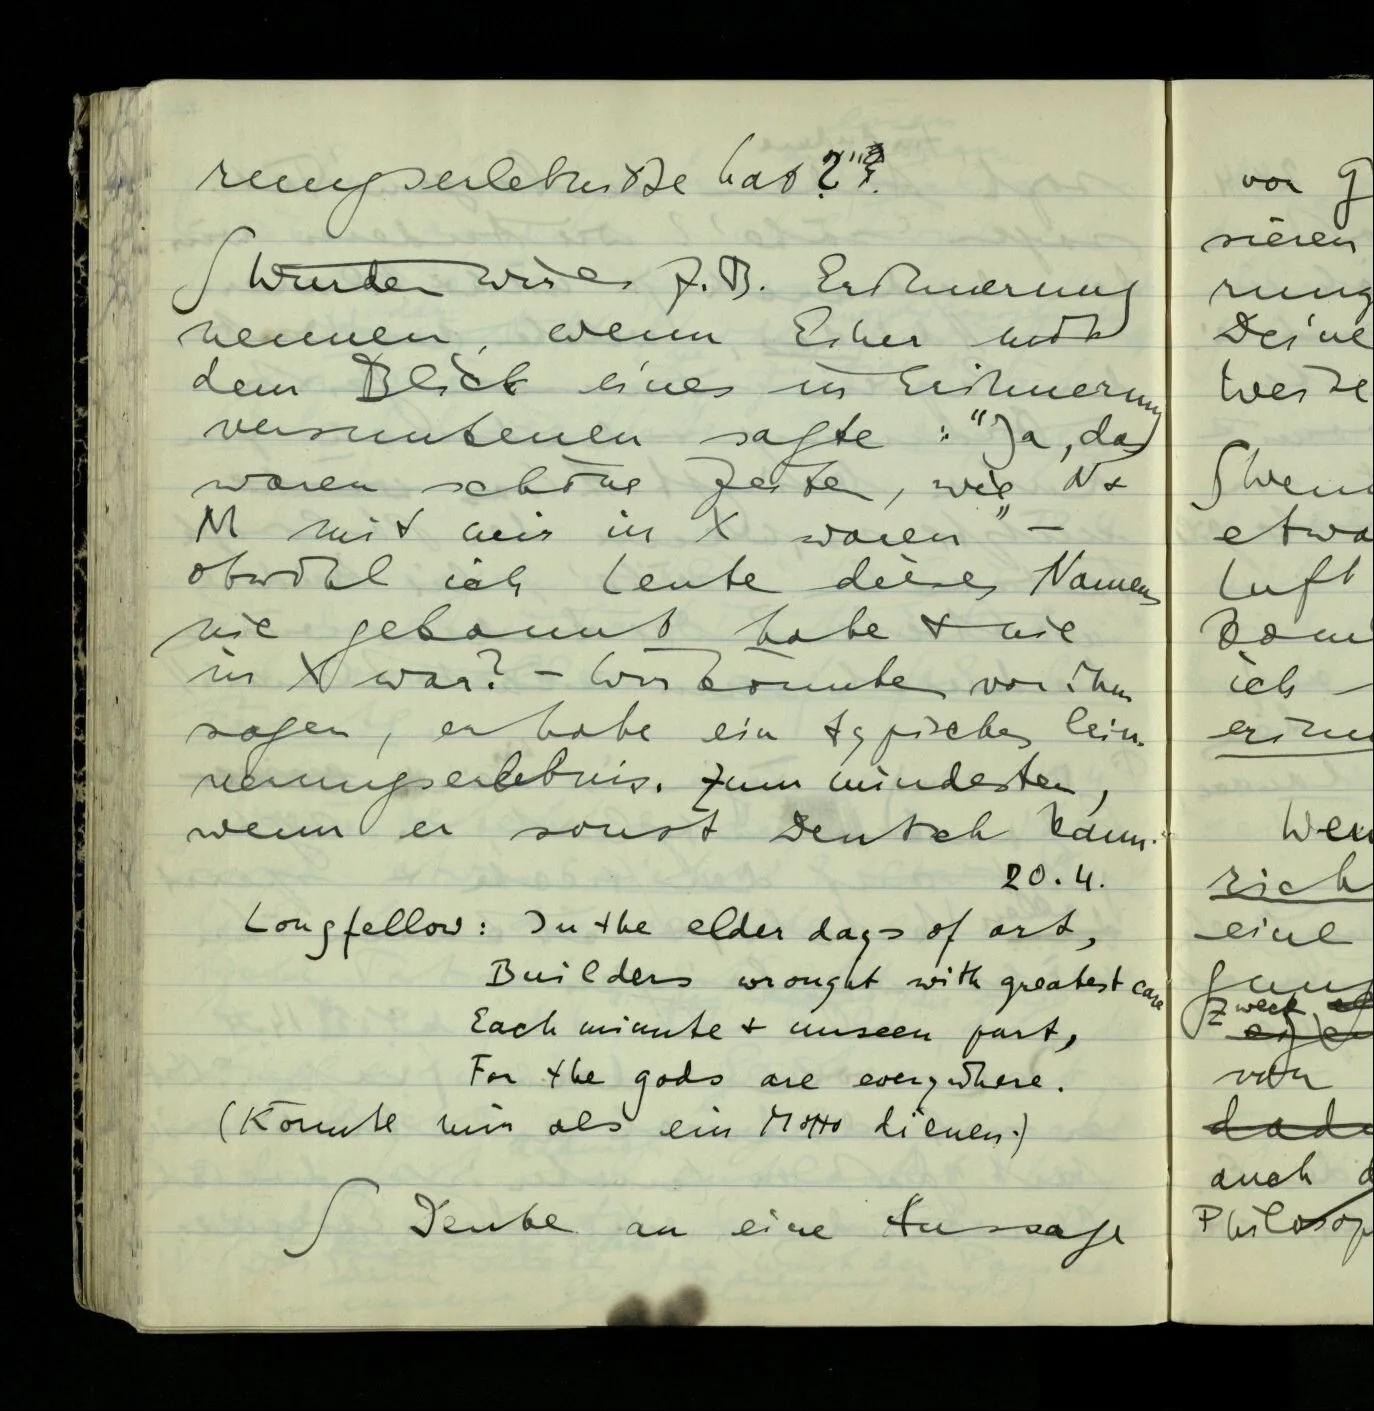 rungserlebnisse hat?"?
∫ Würden wir es z.B. Erinnerung
nennen, wenn Einer mit
dem Blick eines in Erinnerung
versunkenen sagte: "Ja, das
waren schöne Zeiten, wie N &
M mit mir in X waren" –
obwohl ich Leute dieses Namens
nie gekannt habe & nie
in X war? – Wir könnten von ihm
sagen, er habe ein typisches Erin-
nerungserlebnis. Zum mindesten,
wenn er sonst Deutsch kann.
20.4.
Longfellow: In the elder days of art,
Builders wrought with greatest care
Each minute & unseen part,
For the gods are everywhere.
(Könnte mir als ein Motto dienen.)
∫ Denke an eine Aussage
von
sieren
rung
Deine
∫ Wenn
etwa
Luft
ich –
Wen
eine
Zweck
von
auch
Philosop